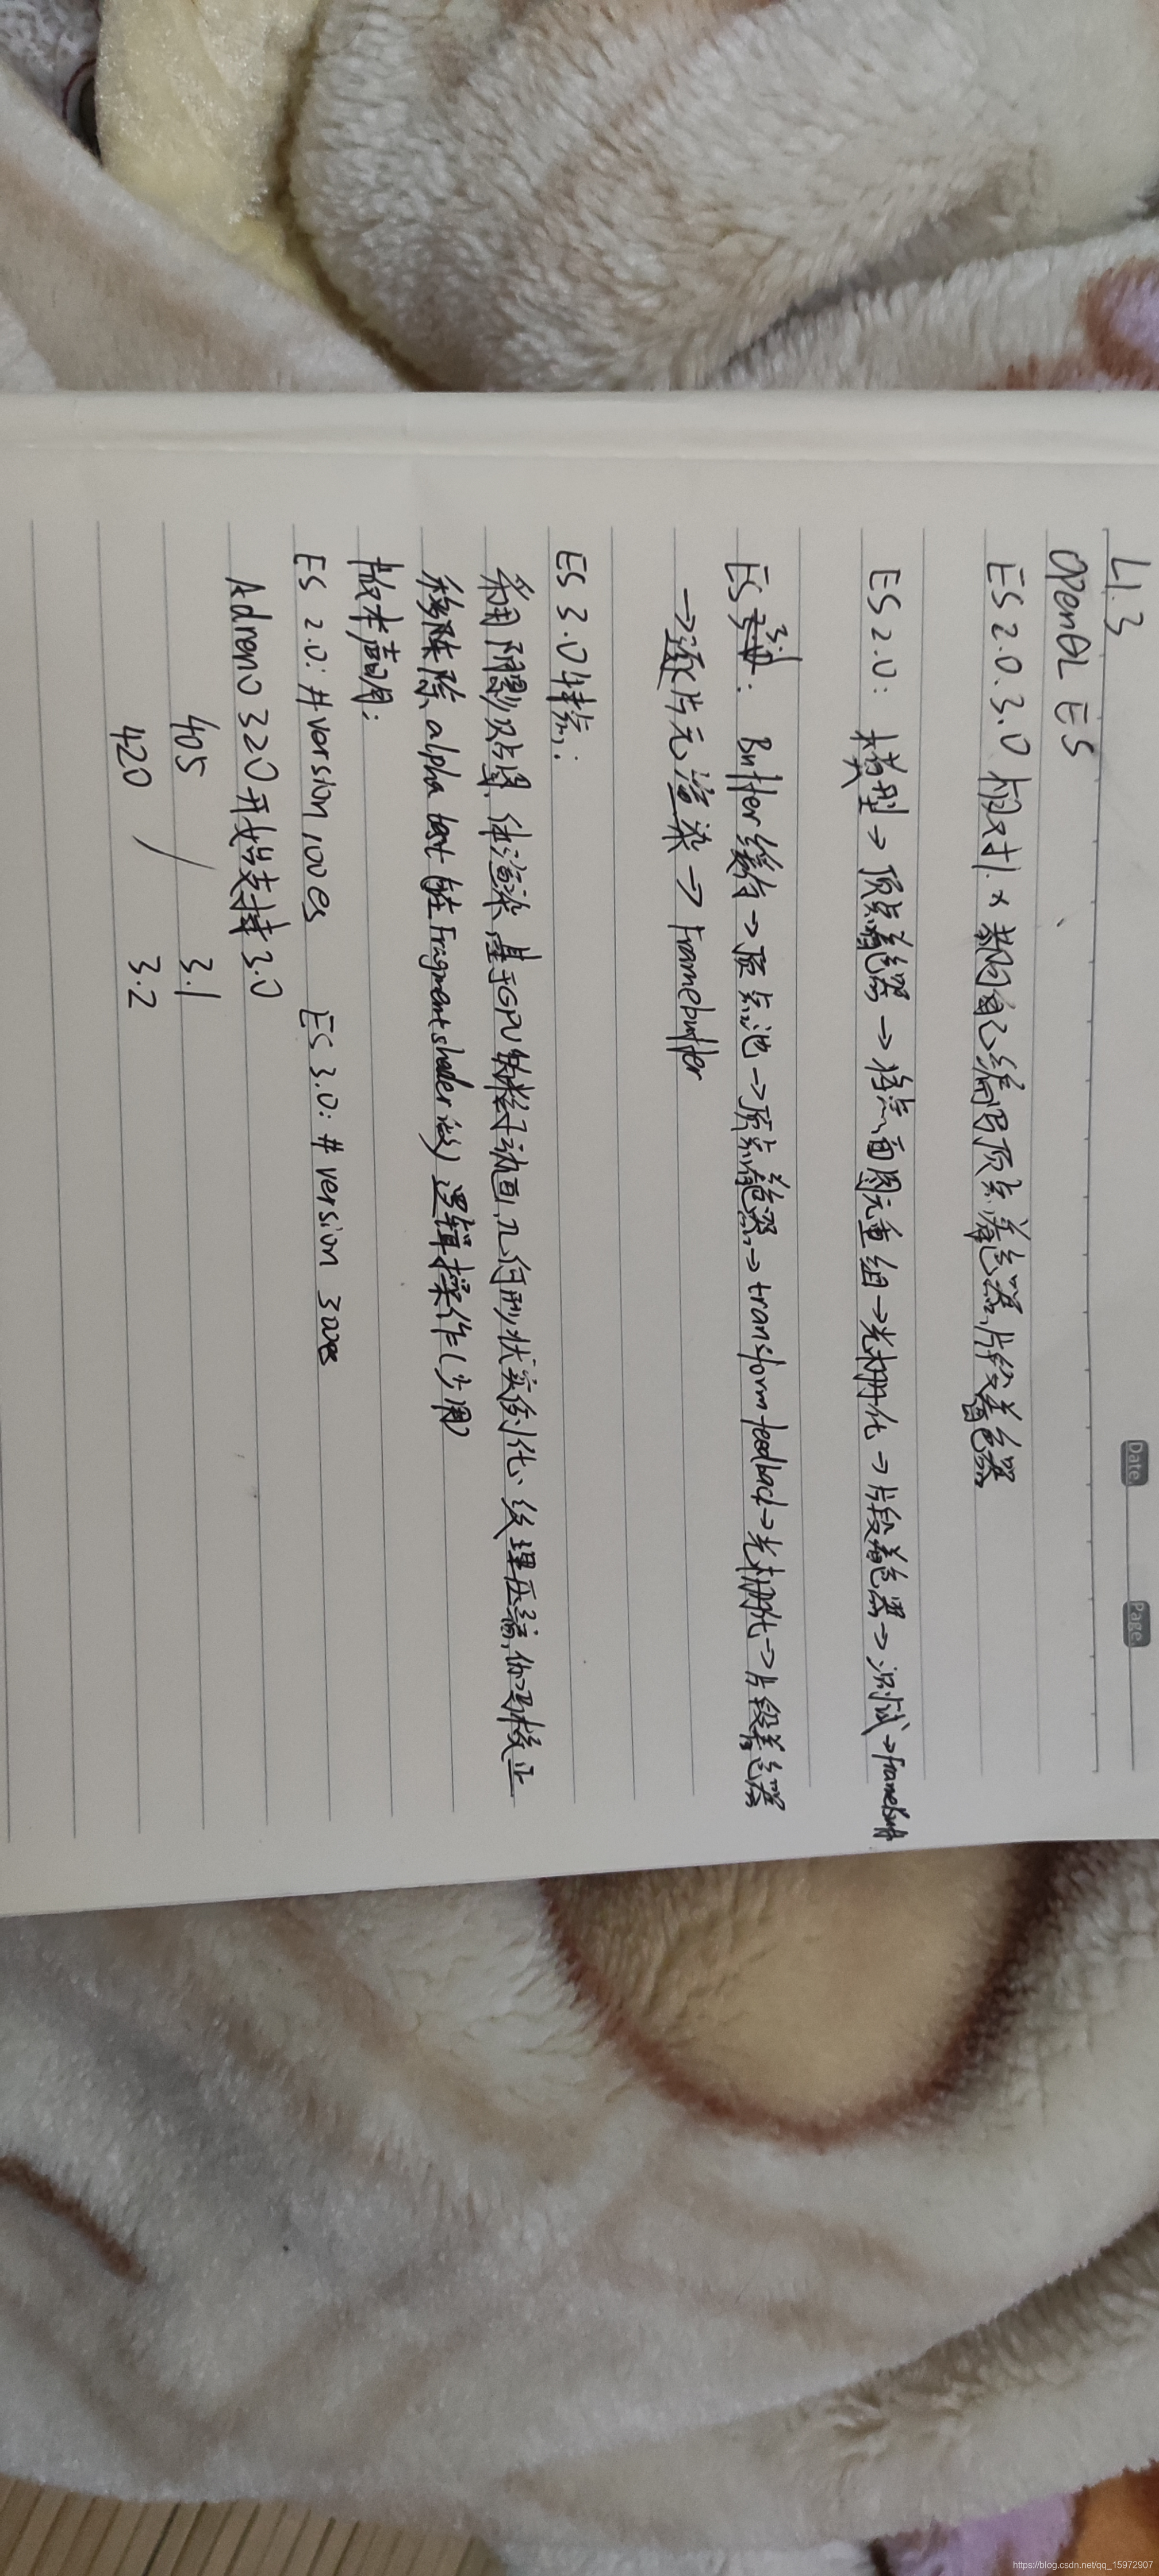 Date.
Page
L1.3
OpenGL ES
ES 2.0. 3.0 相对1.x 都自己编写顶点着色器, 片段着色器
ES 2.0: 模型 → 顶点着色器 → 将点、面图元重组 → 光栅化 → 片段着色器 → 测试 → framebuff
ES 3.1: Buffer缓存 → 顶点池 → 顶点着色器 → transform feedback → 光栅化 → 片段着色器
→ 逐片元渲染 → Framebuffer
ES 3.0特点:
利用阴影贴图、体渲染、基于GPU的粒子动画、几何形状实例化、纹理压缩, 伽马校正
移除 alpha test (在Fragment shader 做) 逻辑操作(少用)
版本声明:
ES 2.0: #version 100 es ES 3.0: # version 300 es
Adreno 320 开始支持 3.0
405 3.1
420 / 3.2
https://blog.csdn.net/qq_15972907